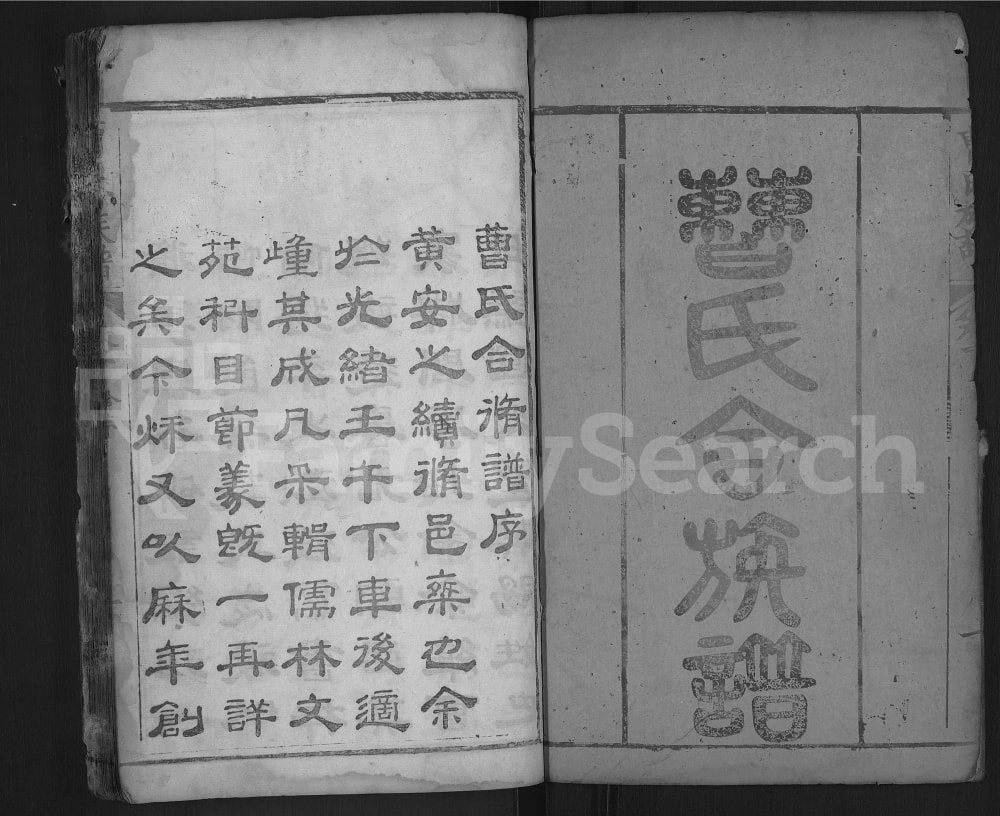 曹氏合族譜
曹氏合脩譜序
黃安之續脩邑乘也余
於光緒壬午下車後適
踵其成凡采輯儒林文
苑科目節義旣一再詳
之矣今秌又以麻年創
FamilySearch